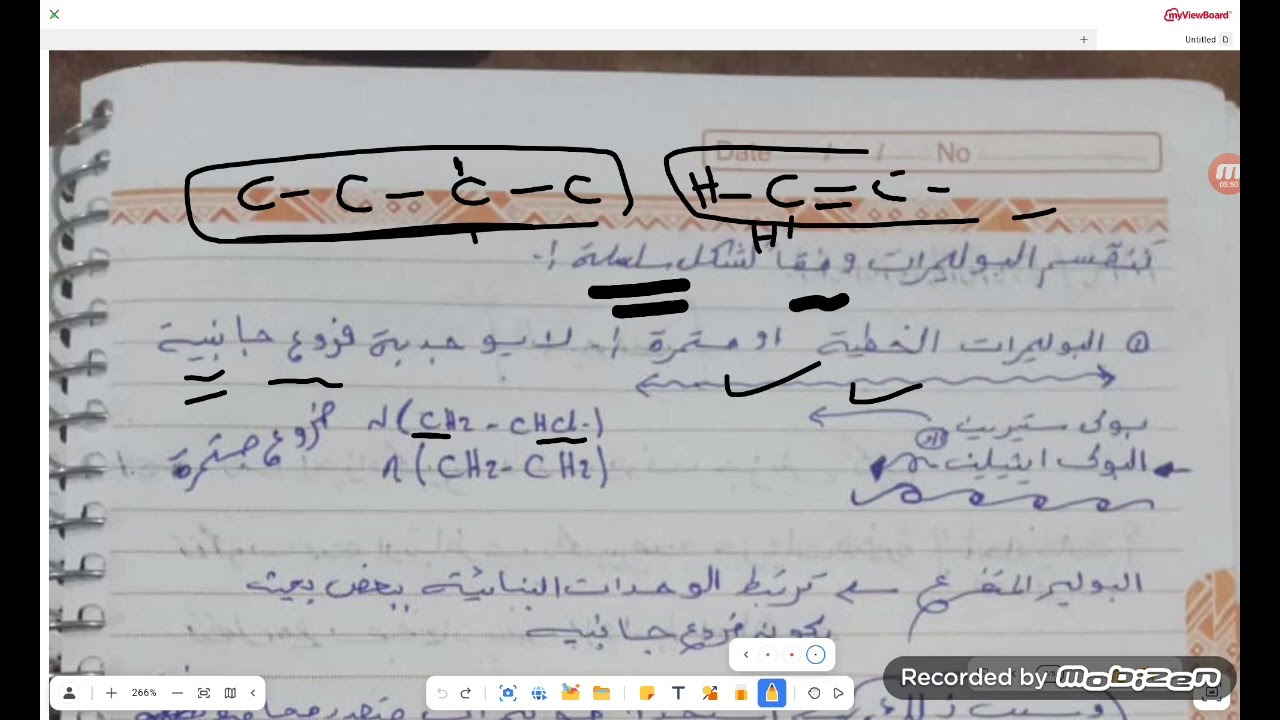 myViewBoard
Untitled
Date / / No
C - C - C - C
H - C = C -
H
تنقسم البوليمرات وفقا لشكل سلسلة :-
① البوليمرات الخطية او مستمرة :- لا يوجد به فروع جانبية
بولى ستيريت
N (CH2 - CHCl-)
البولى ايثيلين
n (CH2- CH2)
البوليمر المتفرع ← ترتبط الوحدات البنائية ببعض بحيث
يكون فروع جانبيه
266%
05:50
Recorded by mobizen